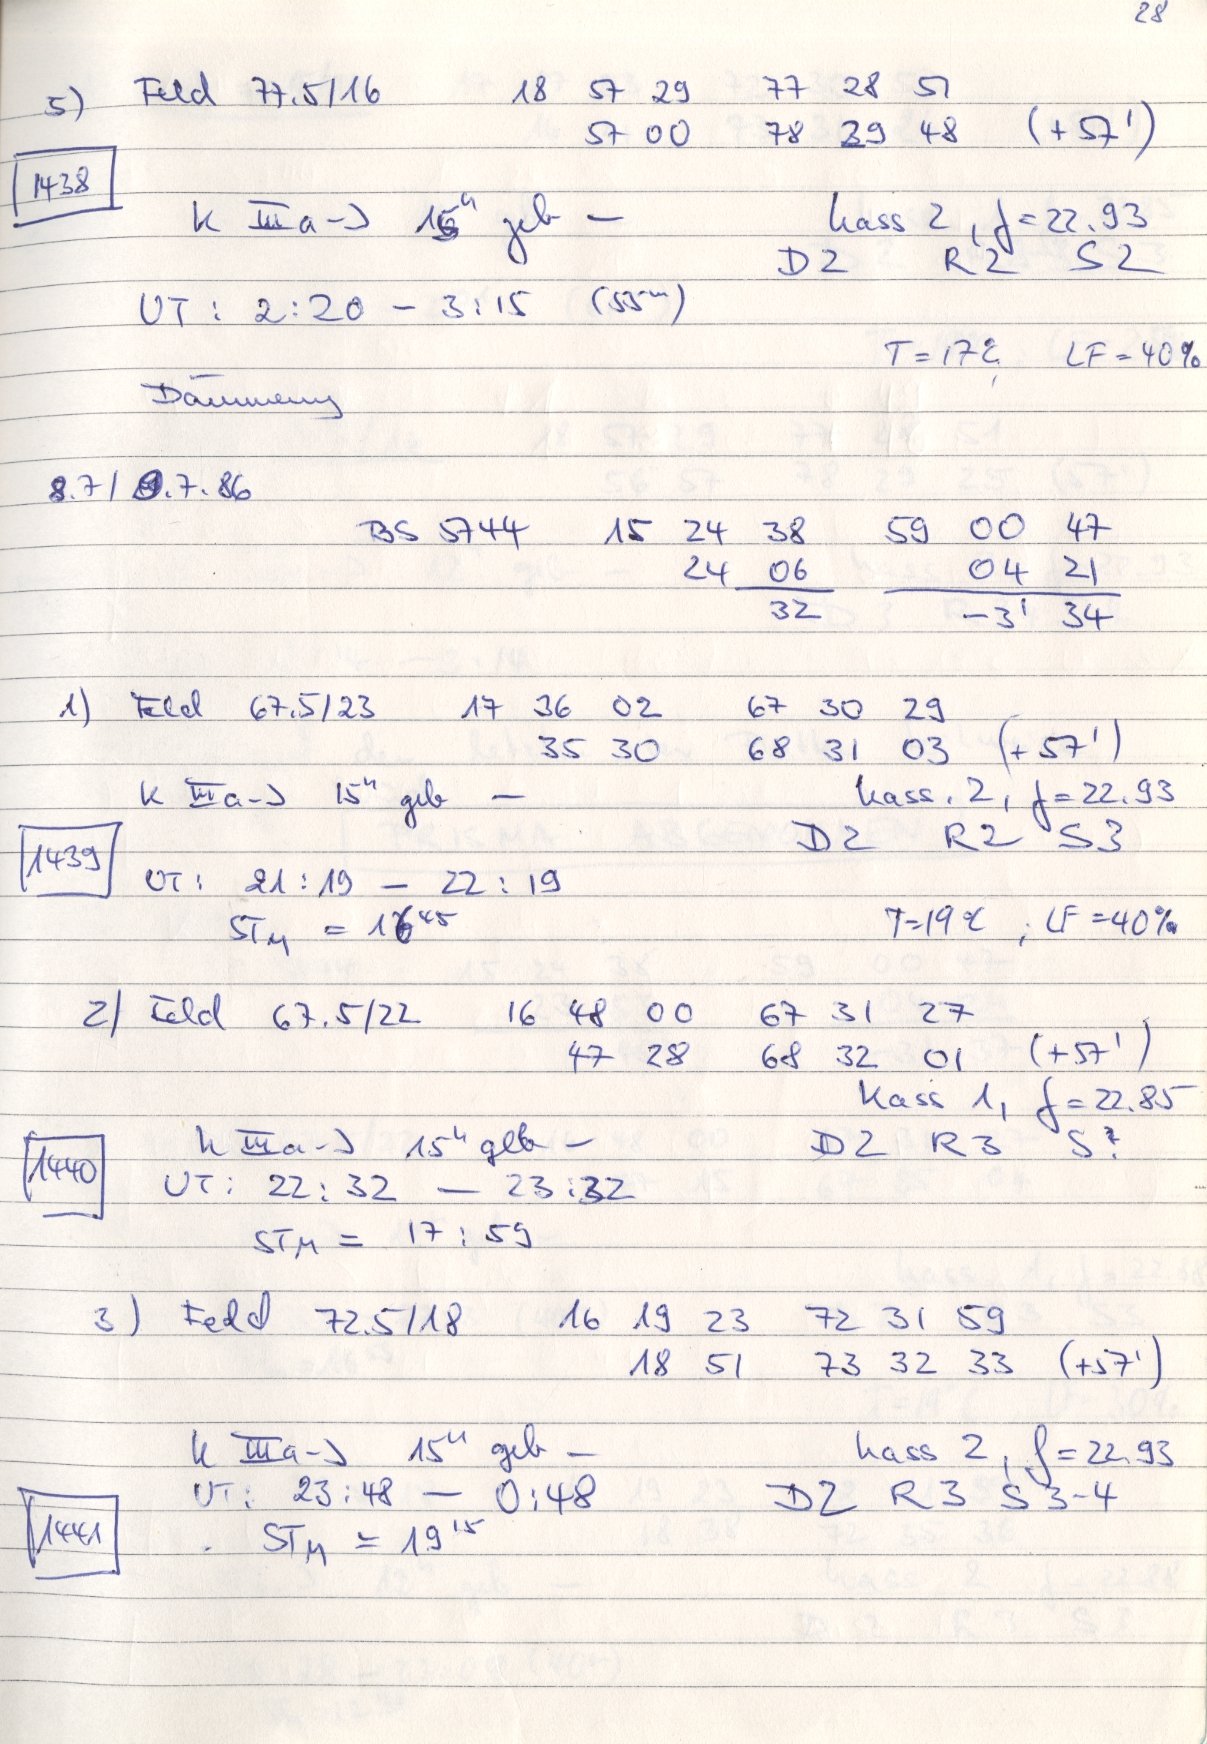 28
5) Feld 77.5/16 18 57 29 77 28 51
57 00 78 29 48 (+57')
1438
K IIIa-J 15ʰ geb — Kass 2, f=22.93
D2 R2 S2
UT: 2:20 — 3:15 (55ᵐ)
T=17°C, LF=40%
Dämmerung
8.7/9.7.86
BS 5744 15 24 38 59 00 47
24 06 04 21
32 -3' 34
1) Feld 67.5/23 17 36 02 67 30 29
35 30 68 31 03 (+57')
K IIIa-J 15ʰ geb — Kass. 2, f=22.93
D2 R2 S3
1439
UT: 21:19 — 22:19
STM = 16⁴⁵ T=19°C; LF=40%
2) Feld 67.5/22 16 48 00 67 31 27
47 28 68 32 01 (+57')
Kass 1, f=22.85
1440
K IIIa-J 15ʰ geb — D2 R3 S?
UT: 22:32 — 23:32
STM = 17:59
3) Feld 72.5/18 16 19 23 72 31 59
18 51 73 32 33 (+57')
K IIIa-J 15ʰ geb — Kass 2, f=22.93
UT: 23:48 — 0:48 D2 R3 S3-4
1441
STM = 19¹⁵